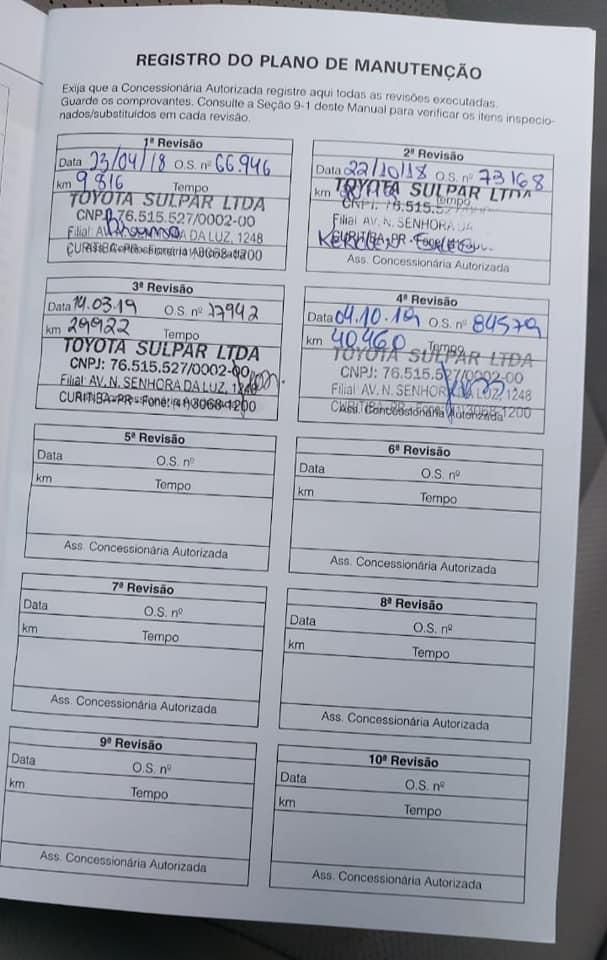 REGISTRO DO PLANO DE MANUTENÇÃO
Exija que a Concessionária Autorizada registre aqui todas as revisões executadas.
Guarde os comprovantes. Consulte a Seção 9-1 deste Manual para verificar os itens inspecio-
nados/substituídos em cada revisão.
1ª Revisão
Data 23/04/18 O.S. nº 66.946
km 9816 Tempo
TOYOTA SULPAR LTDA
CNPJ 76.515.527/0002-00
Filial: AV. N. SENHORA DA LUZ, 1248
CURITIBA-PR - Fone: (41) 3068-1200
2ª Revisão
Data 22/10/18 O.S. nº 73168
km Tempo
TOYOTA SULPAR LTDA
CNPJ: 76.515.527
Filial AV. N. SENHORA DA
CURITIBA-PR - Fone
Ass. Concessionária Autorizada
3ª Revisão
Data 14.03.19 O.S. nº 77942
km 29922 Tempo
TOYOTA SULPAR LTDA
CNPJ: 76.515.527/0002-00
Filial: AV. N. SENHORA DA LUZ, 1248
CURITIBA-PR - Fone: (41) 3068-1200
4ª Revisão
Data 04.10.19 O.S. nº 84579
km 40460 Tempo
TOYOTA SULPAR LTDA
CNPJ: 76.515.527/0002-00
Filial: AV. N. SENHORA DA LUZ, 1248
CURITIBA-PR - Fone: (41) 3068-1200
Ass. Concessionária Autorizada
5ª Revisão
Data O.S. nº
km Tempo
Ass. Concessionária Autorizada
6ª Revisão
Data O.S. nº
km Tempo
Ass. Concessionária Autorizada
7ª Revisão
Data O.S. nº
km Tempo
Ass. Concessionária Autorizada
8ª Revisão
Data O.S. nº
km Tempo
Ass. Concessionária Autorizada
9ª Revisão
Data O.S. nº
km Tempo
Ass. Concessionária Autorizada
10ª Revisão
Data O.S. nº
km Tempo
Ass. Concessionária Autorizada